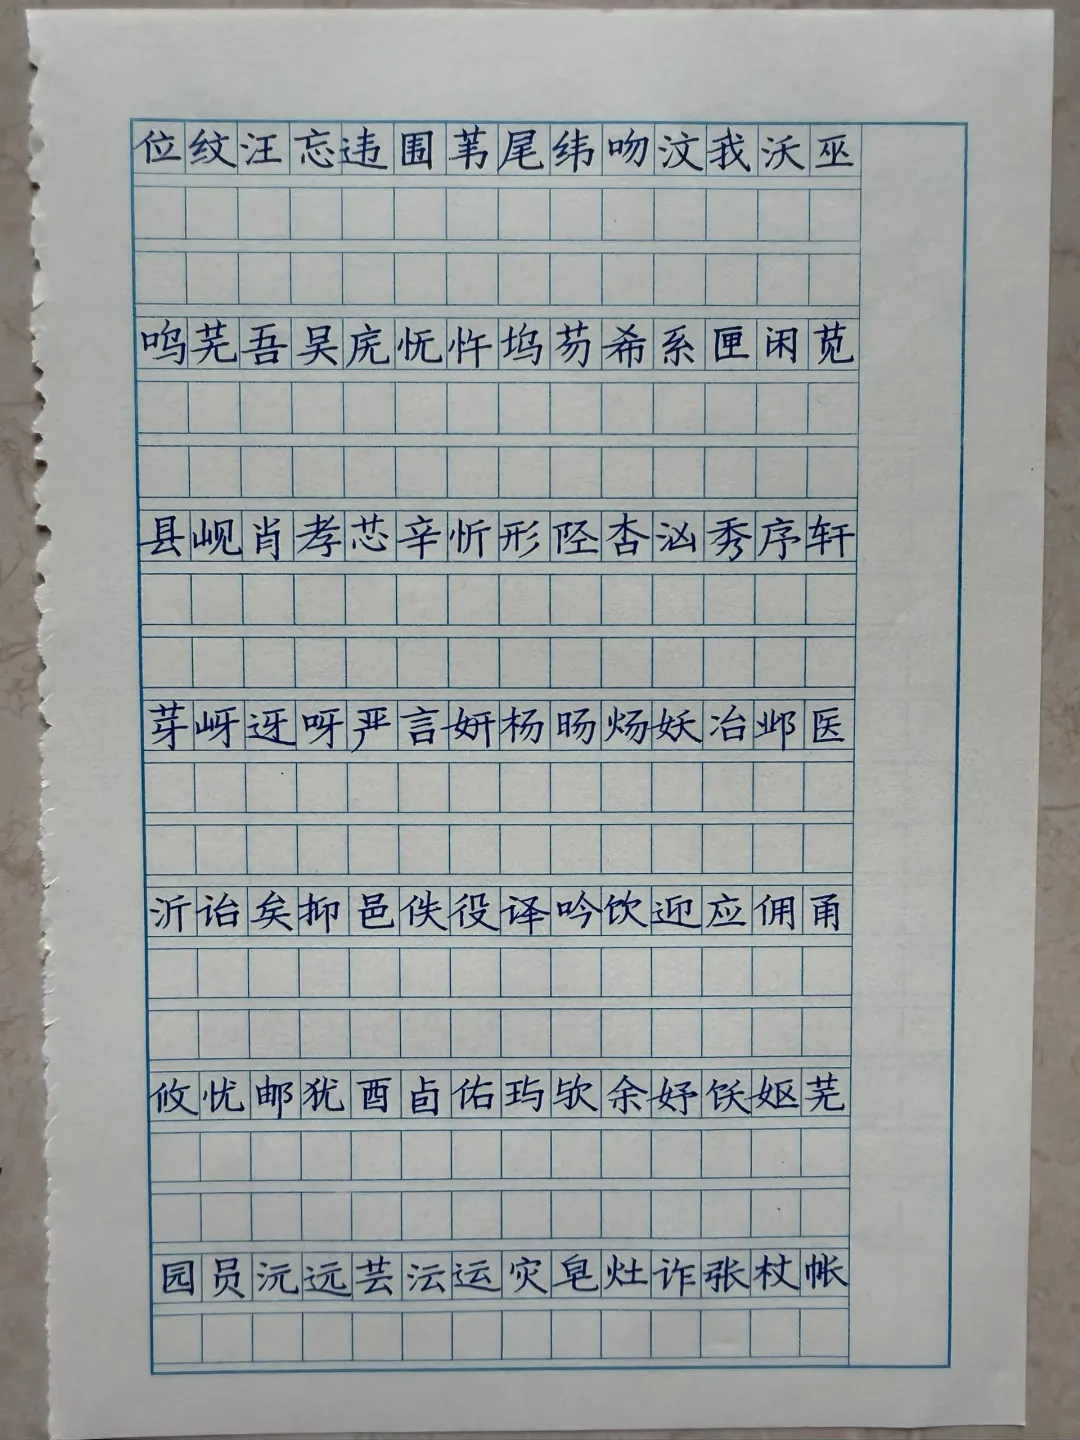 位纹汪忘违围苇尾纬吻汶我沃巫
呜芜吾吴庑怃忤坞芴希系匣闲苋
县岘肖孝芯辛忻形陉杏汹秀序轩
芽岈迓呀严言妍杨旸炀妖冶邺医
沂诒矣抑邑佚役译吟饮迎应佣甬
攸忧邮犹酉卣佑玙欤余妤饫妪芜
园员沅远芸沄运灾皂灶诈张杖帐